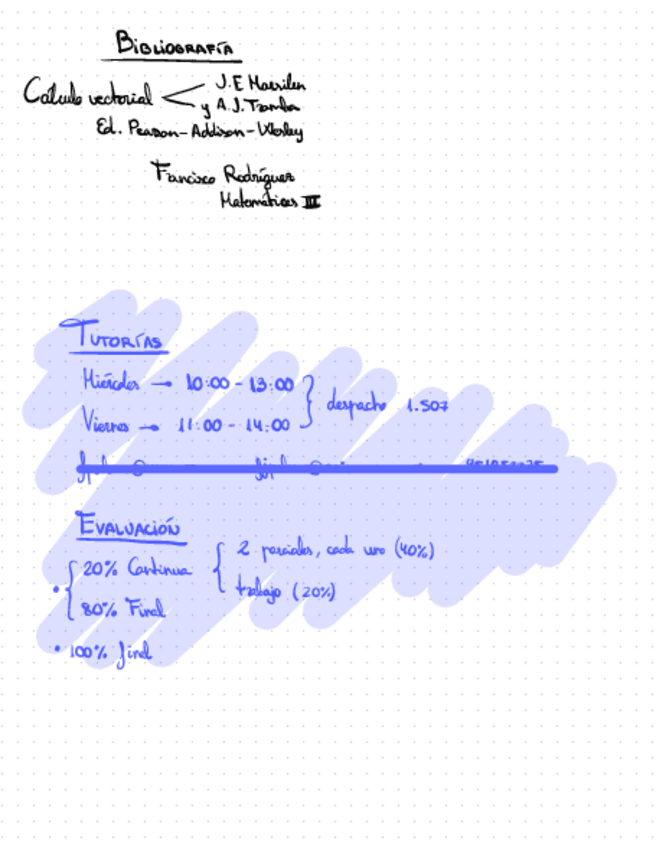 BIBLIOGRAFÍA
Cálculo vectorial < J.E Marsden
y A.J. Tromba
Ed. Pearson-Addison-Wesley
Francisco Rodríguez
Matemáticas III
TUTORÍAS
Miércoles → 10:00 - 13:00
Viernes → 11:00 - 14:00 } despacho 1.507
EVALUACIÓN
• { 20% Continua { 2 parciales, cada uno (40%)
trabajo (20%)
80% Final
• 100% final